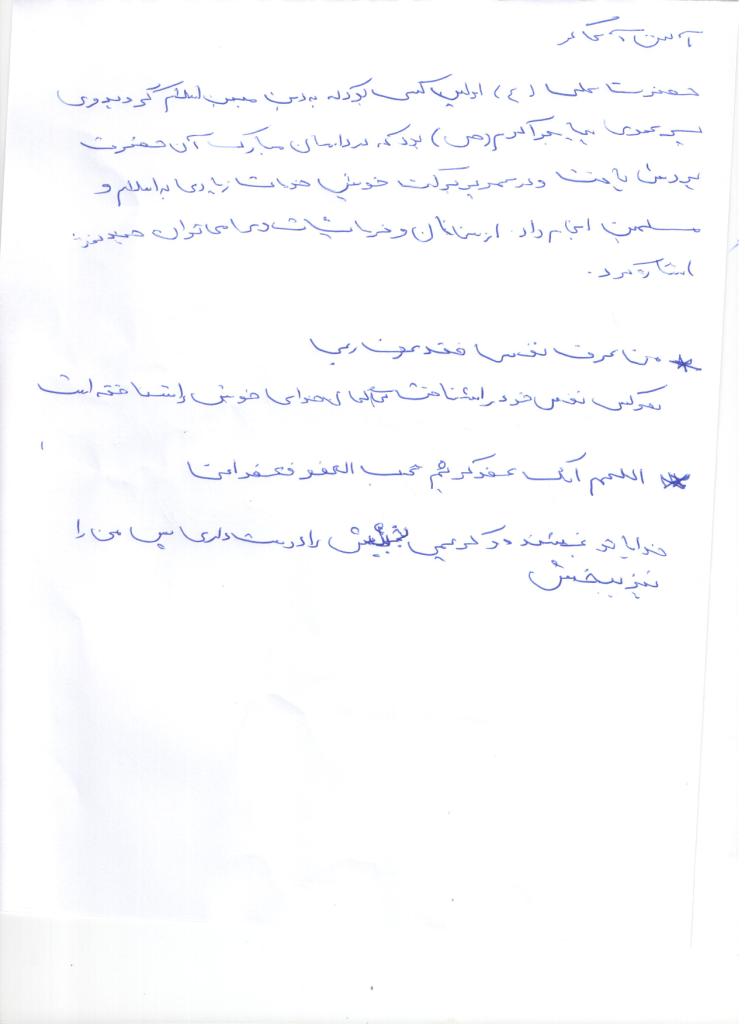 حضرت علی (ع) اولین کسی بود که به دین مبین اسلام گروید وی
پسر عموی پیامبر اکرم (ص) بود که در دامان مبارک آن حضرت
پرورش یافت و در عمر پر برکت خویش خدمات زیادی به اسلام و
مسلمین انجام داد. از سخنان و فرمایشات وی می توان
اشاره کرد.
* من عرف نفسه فقد عرف ربه
هر کس نفس خود را شناخت خدای خویش را شناخته است
* اللهم انک عفو کریم تحب العفو فعفو
خدایا تو بخشنده و کریمی بخشش را دوست داری پس من را
نیز ببخش